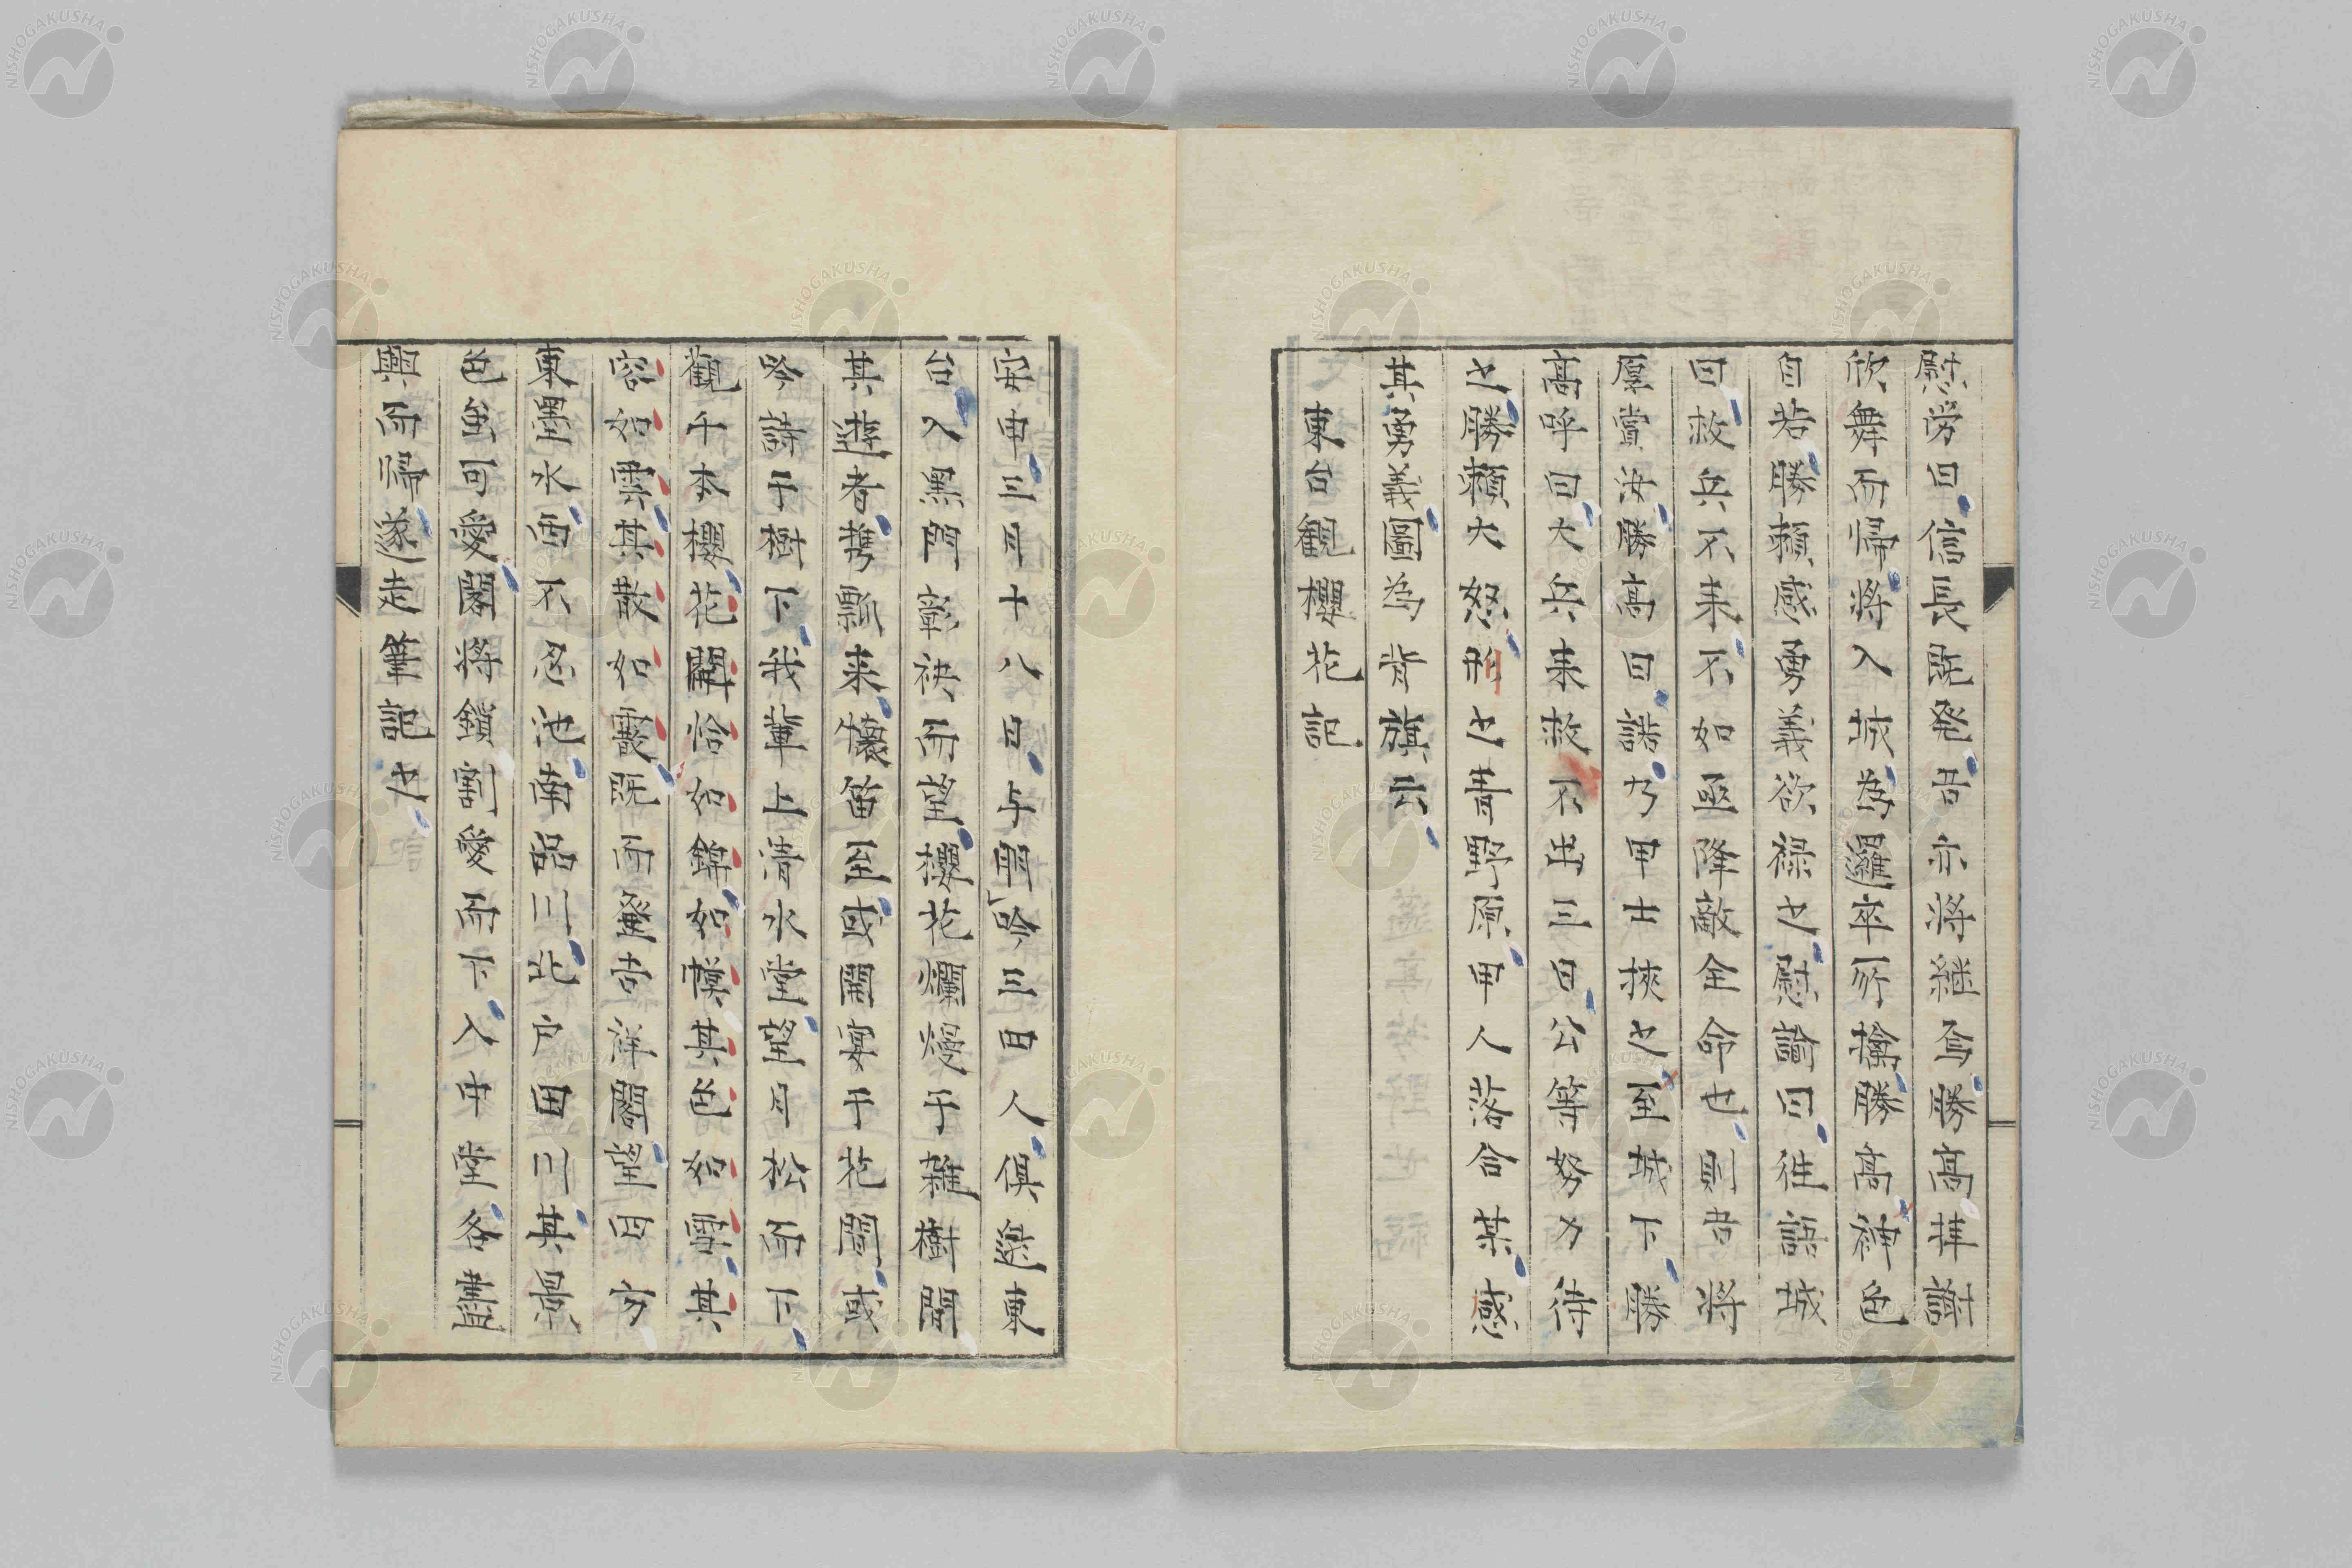 慰労曰信長既発吉亦将継焉勝高拝謝
欣舞而帰将入城為邏卒所擒勝高神色
自若勝頼感勇義欲禄之慰諭曰徃語城
曰救兵不来不如亟降敵全命也則吾将
厚賞汝勝高曰諾乃甲士挾之至城下勝
高呼曰大兵来救不出三日公等努力待
之勝頼大怒刑之昔野原甲人落合某感
其勇義圖為背旗云
東台観櫻花記
安車三月十八日与朋吟三田人倶遊東
台入黒門彰袂而望櫻花爛熳于雑樹間
其遊者携瓢来懐笛至或開宴于花間或
吟詩于樹下我輩上清水堂望月松而下
觀千本櫻花開恰如錦如模其色如雪其
容如雲其散如霰既而登吉祥閣望四方
東墨水西不忍池南品川北戸田川其景
色金可愛閣将鎖割愛而下入中堂各盡
興而帰遂走筆記之
NISHOGAKUSHA